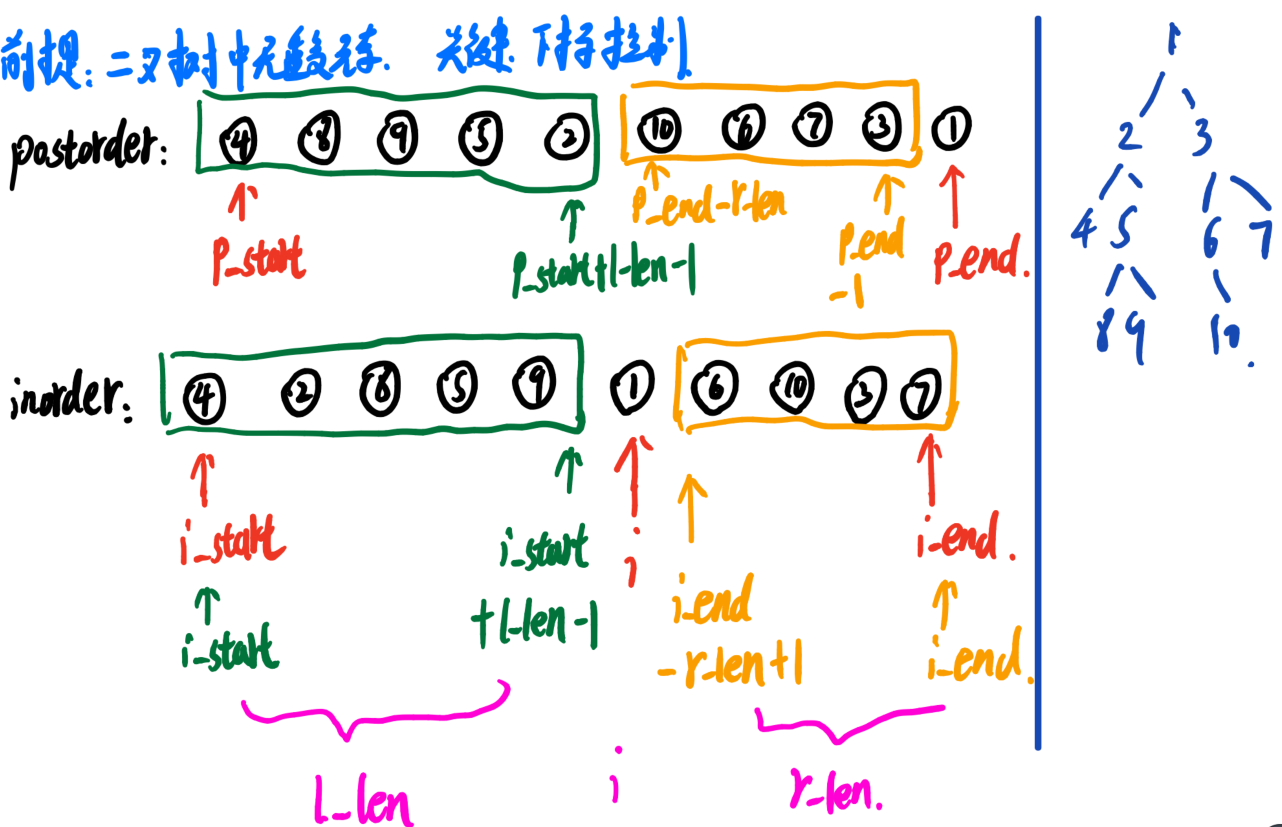 前提：二叉树中无重复元素. 关键：下标控制
postorder: ④ ⑧ ⑨ ⑤ ② ⑩ ⑥ ⑦ ③ ①
p_start
p_start+l-len-1
p_end-r-len
p_end
-1
p_end.
inorder: ④ ② ⑧ ⑤ ⑨ ① ⑥ ⑩ ③ ⑦
i_start
i_start
i_start
+l-len-1
i
i_end
-r-len+1
i-end.
i-end.
l-len
i
r-len.
1
2 3
4 5 6 7
8 9 10.